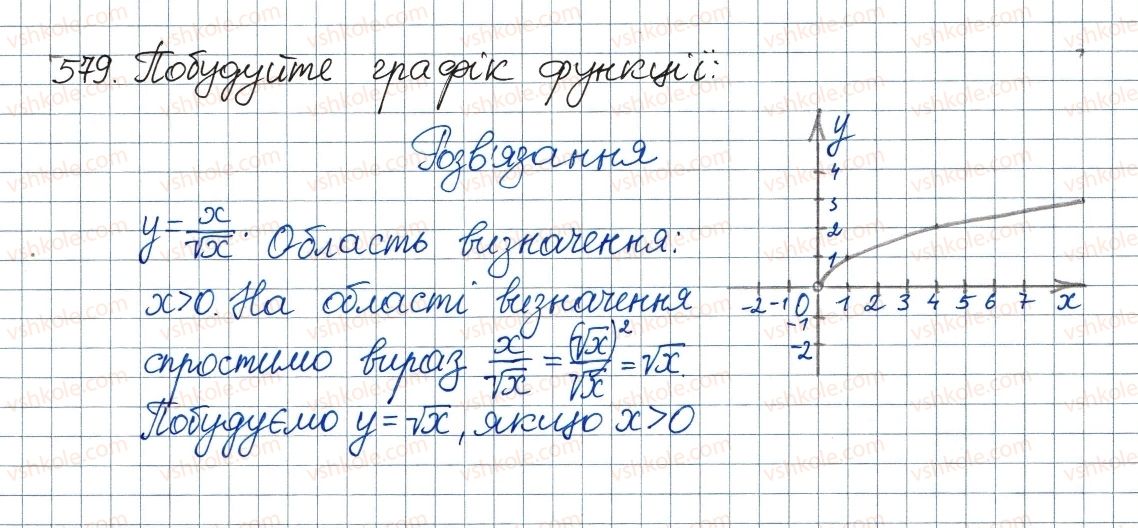 579. Побудуйте графік функції:
Розв'язання
y = x/√x. Область визначення:
x>0. На області визначення
спростимо вираз x/√x = (√x)²/√x = √x.
Побудуємо y = √x, якщо x>0
y
4
3
2
1
-2 -1 0 1 2 3 4 5 6 7 x
-1
-2
vshkole.com